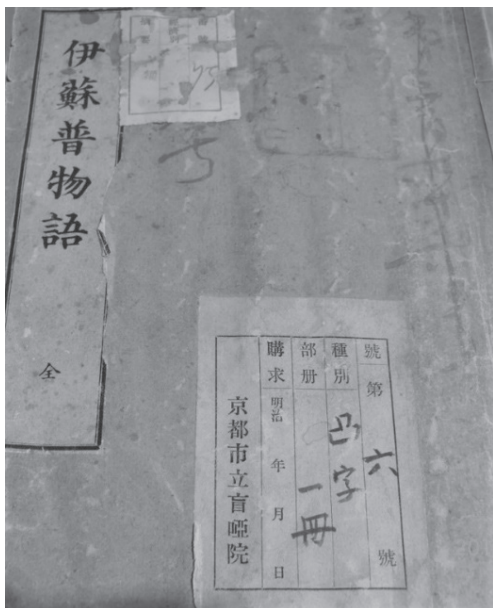 伊蘇普物語
全
號第六號
種別凸字
部册一冊
購求明治年月日
京都市立盲啞院